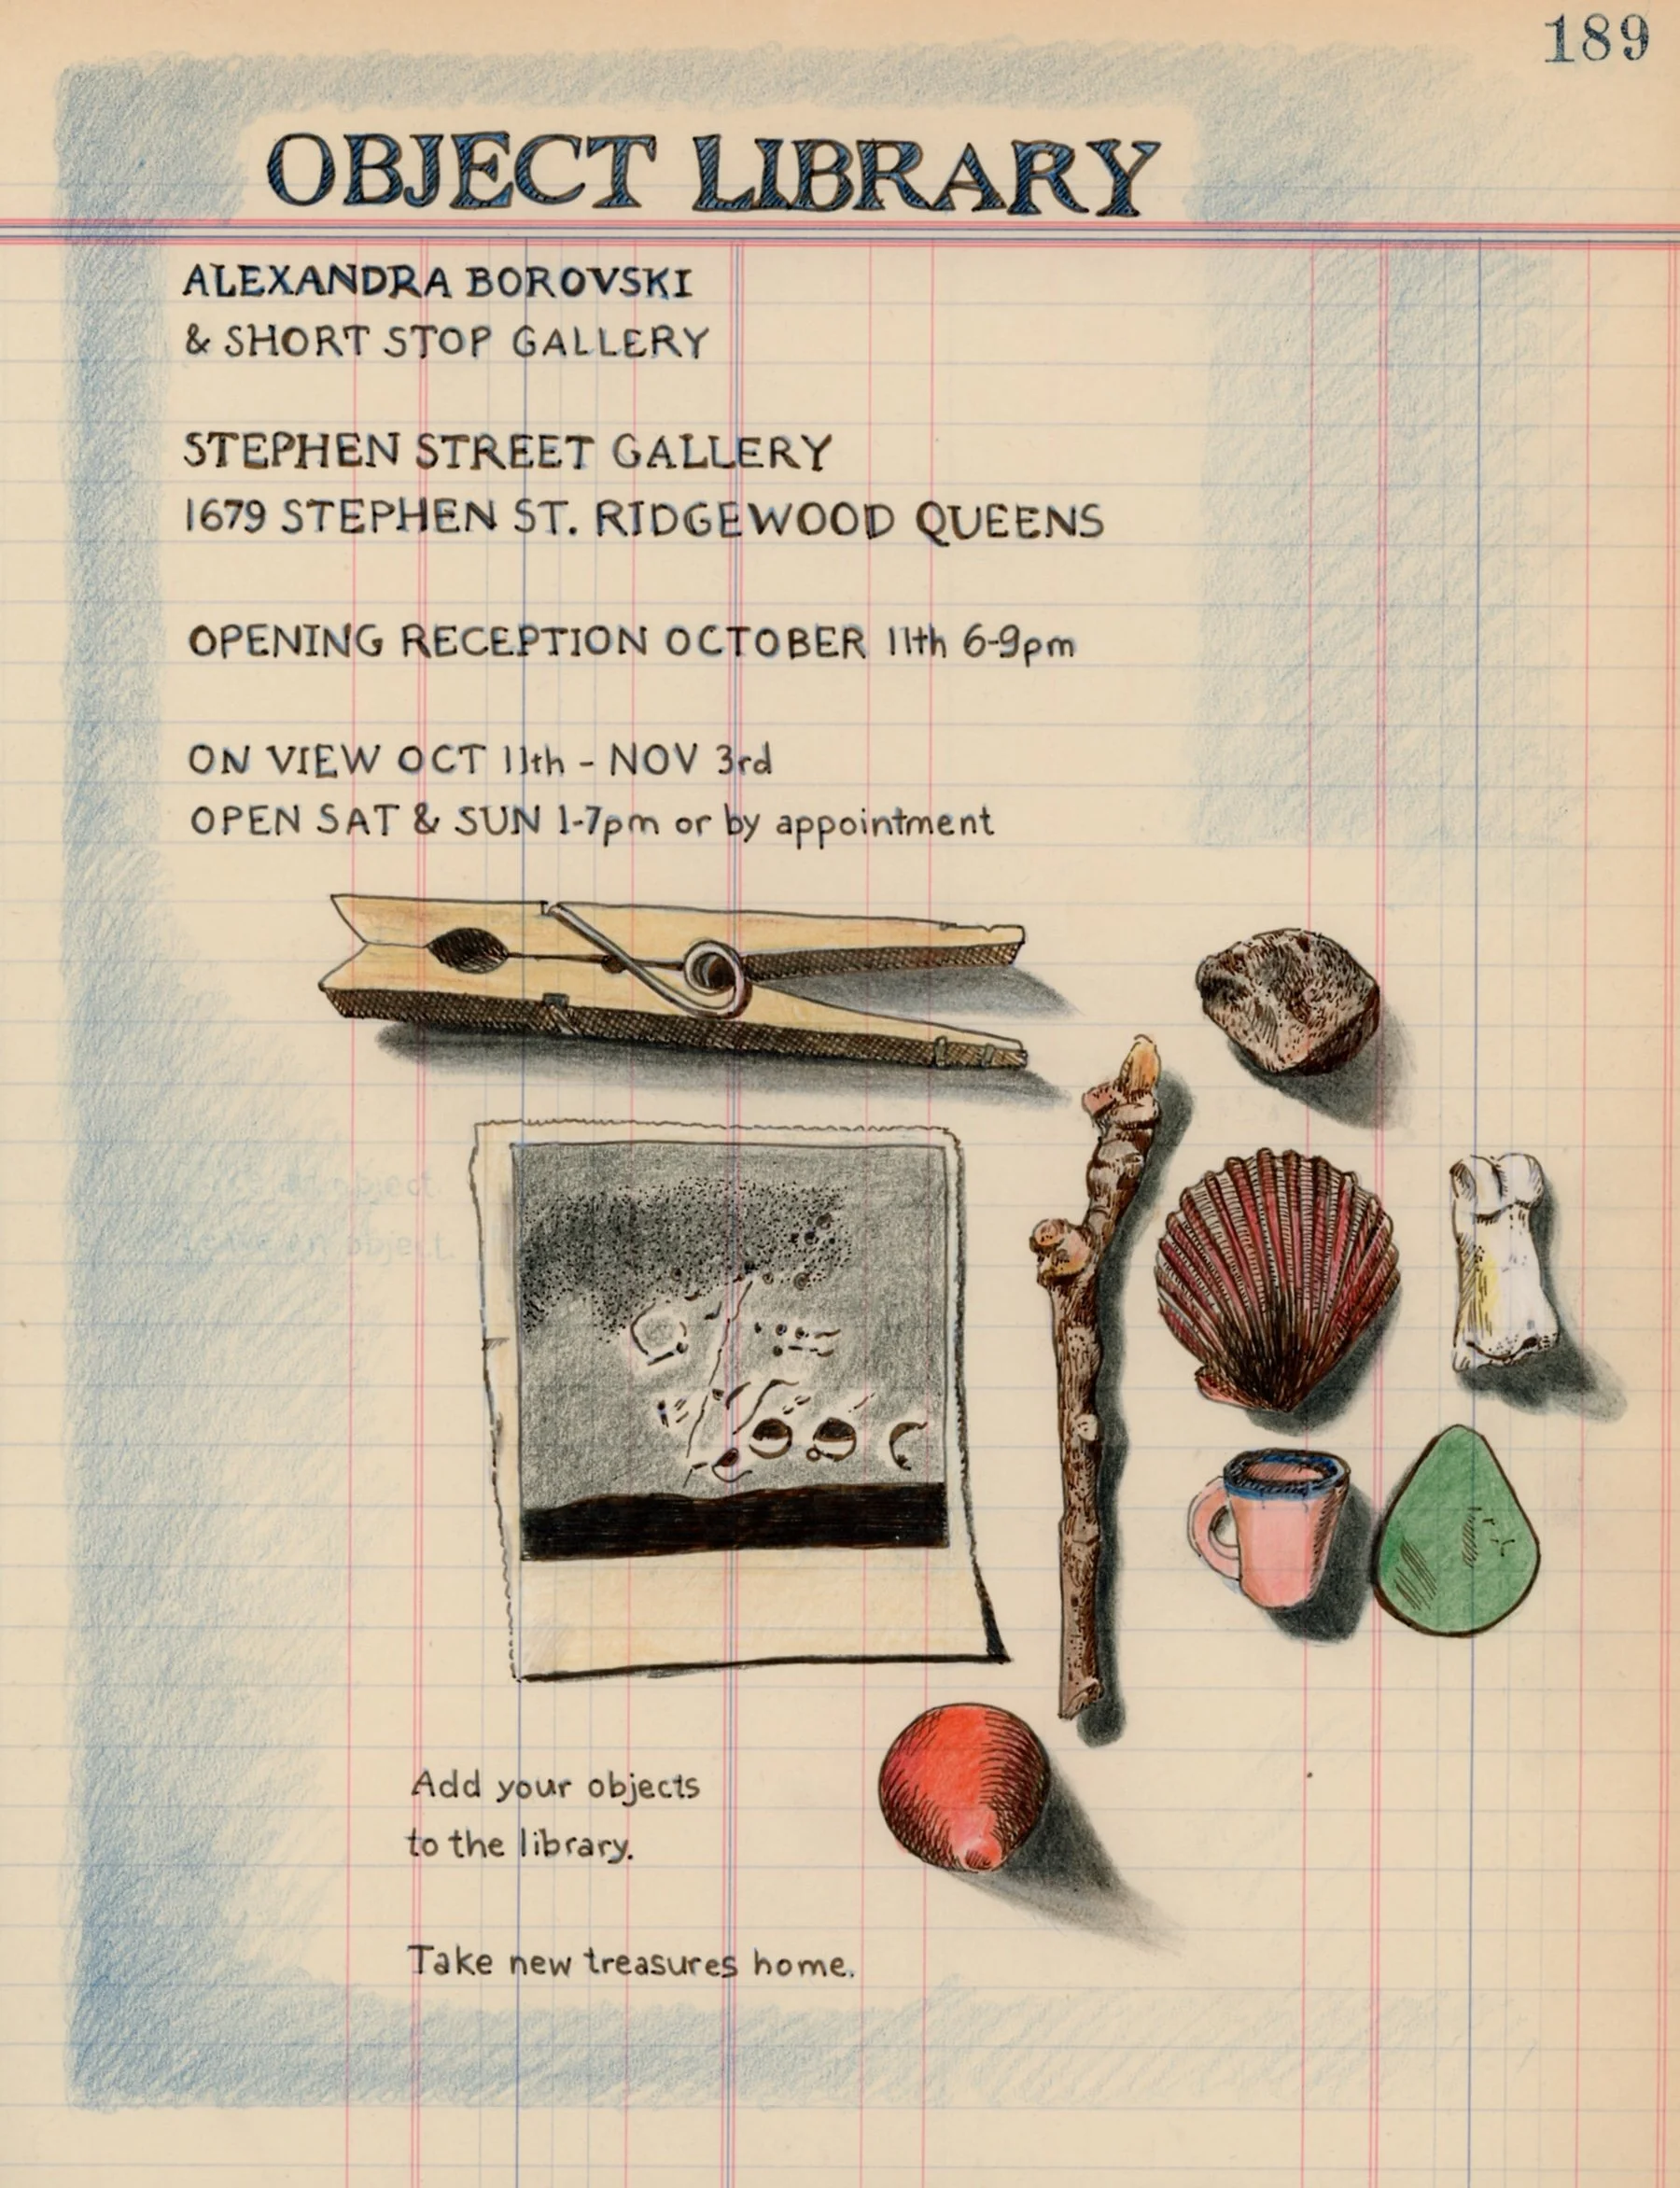 189
OBJECT LIBRARY
ALEXANDRA BOROVSKI
& SHORT STOP GALLERY
STEPHEN STREET GALLERY
1679 STEPHEN ST. RIDGEWOOD QUEENS
OPENING RECEPTION OCTOBER 11th 6-9pm
ON VIEW OCT 11th - NOV 3rd
OPEN SAT & SUN 1-7pm or by appointment
an object
an object.
Add your objects
to the library.
Take new treasures home.